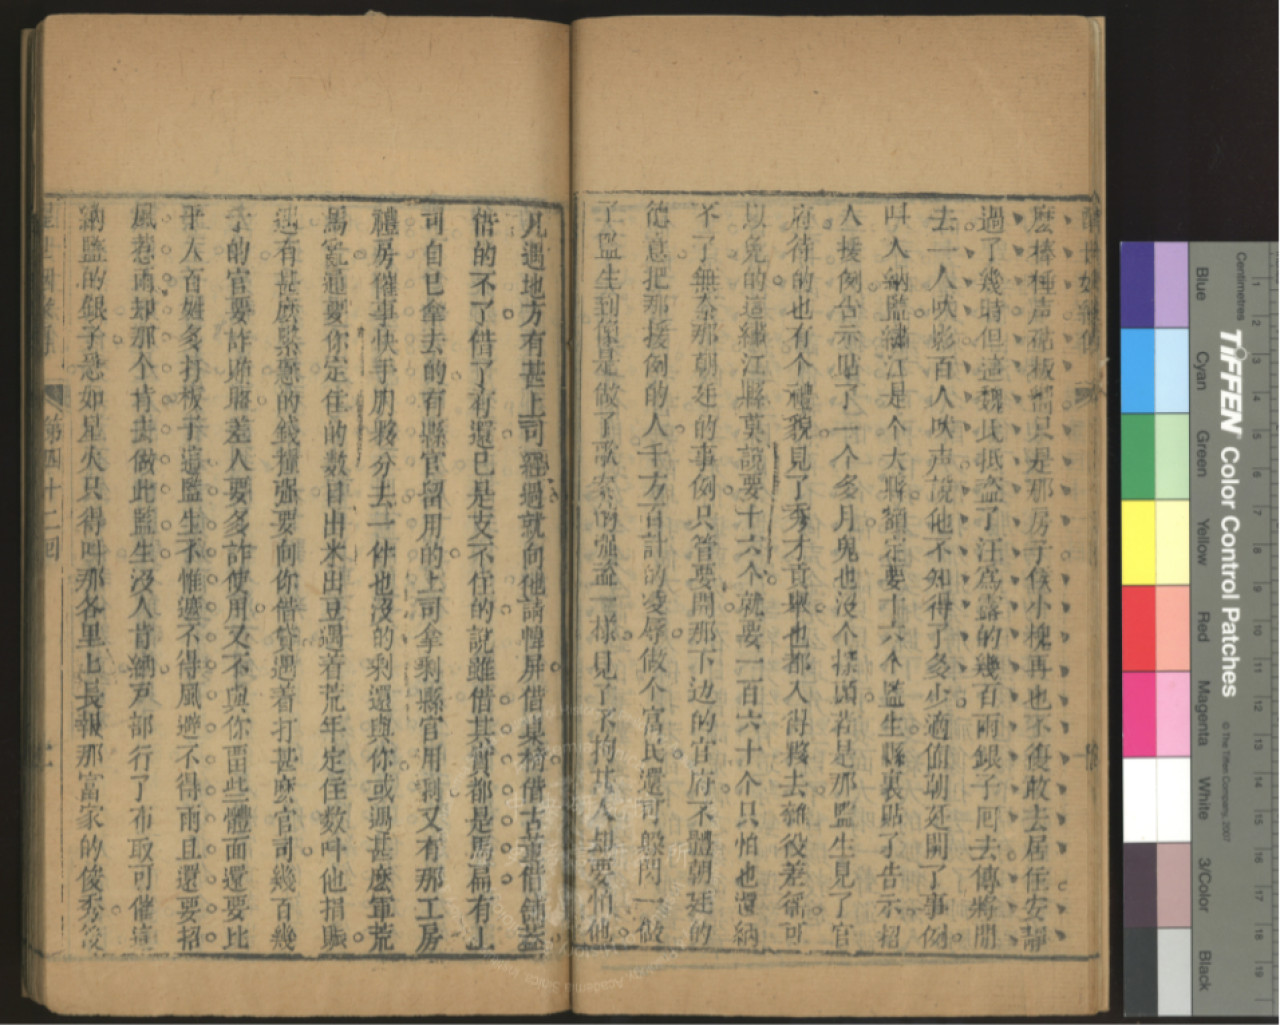 麽棒棰声砧板响只是那房子侯小槐再也不復敢去居住安靜
過了幾時但這魏氏抵盗了汪爲露的幾百兩銀子囘去傳將開
去一人吠影百人吠声說他不知得了多少適值朝廷開了事例
叫人納監繡江是个大縣額定要十六个監生縣裏貼了告示招
人援例告示貼了一个多月鬼也沒个探頭若是那監生見了官
府待的也有个禮貌見了秀才貢舉也都入得夥去雜役差徭可
以免的這繡江縣莫說要十六个就要一百六十个只怕也還納
不了無奈那朝廷的事例只管要開那下边的官府不體朝廷的
德意把那援例的人千方百計的凌辱做个富民還可躲閃一做
了監生到像是做了歇案的强盗一樣見了不拘甚人却要怕他
凡遇地方有甚上司經過就向他請幃屏借桌椅借古董借鋪盖
借的不了借了有還已是支不住的說雖借其實都是馬扁有上
司自己拿去的有縣官留用的上司拿剩縣官用剩又有那工房
禮房催事快手朋夥分去一件也沒的剩還與你或遇甚麽軍荒
馬亂通要你定住的數目出米出豆遇着荒年定住數叫他捐賑
遇有甚麽緊急的錢糧强要向你借貸遇着打甚麽官司幾百幾
千的官要詐賄賂差人要多詐使用又不與你畱些體面還要比
平人百姓多打板子這監生不惟遮不得風避不得雨且還要招
風惹雨却那个肯去做此監生沒人肯納戸部行了布政司催這
納監的銀子急如星火只得叫那各里里長報那富家的俊秀後
第四十二回
TIFFEN Color Control Patches
© The Tiffen Company, 2007
Centimetres
Blue
Cyan
Green
Yellow
Red
Magenta
White
3/Color
Black
1 2 3 4 5 6 7 8 9 10 11 12 13 14 15 16 17 18 19